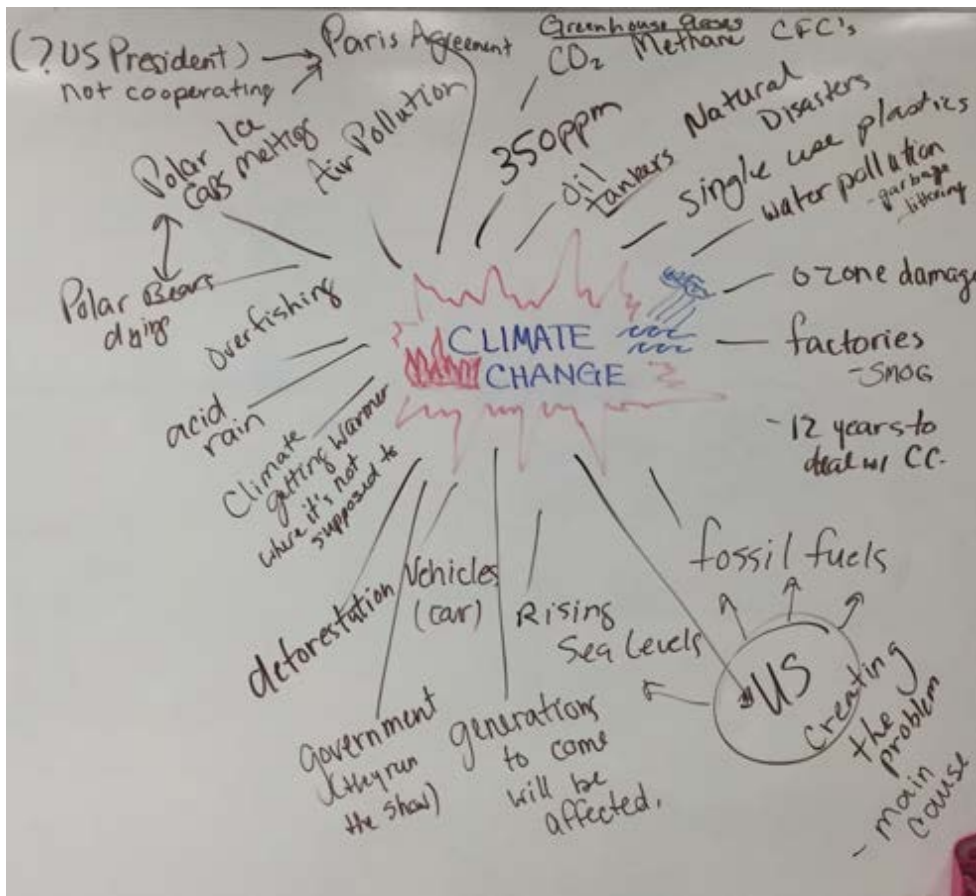 (?US President)
not cooperating
Paris Agreement
Greenhouse Gases
CO2 Methane CFC's
350ppm
Air Pollution
Polar Ice
Caps melting
Polar Bears
dying
Oil
tankers
Natural
Disasters
single use plastics
water pollution
-garbage
-littering
ozone damage
factories
-SMOG
-12 years to
deal w/ CC.
CLIMATE
CHANGE
overfishing
acid
rain
Climate
getting warmer
where it's not
supposed to
deforestation
Vehicles
(car)
Rising
Sea Levels
fossil fuels
US
creating
the problem
- main
cause
government
(they run
the show)
generations
to come
will be
affected.